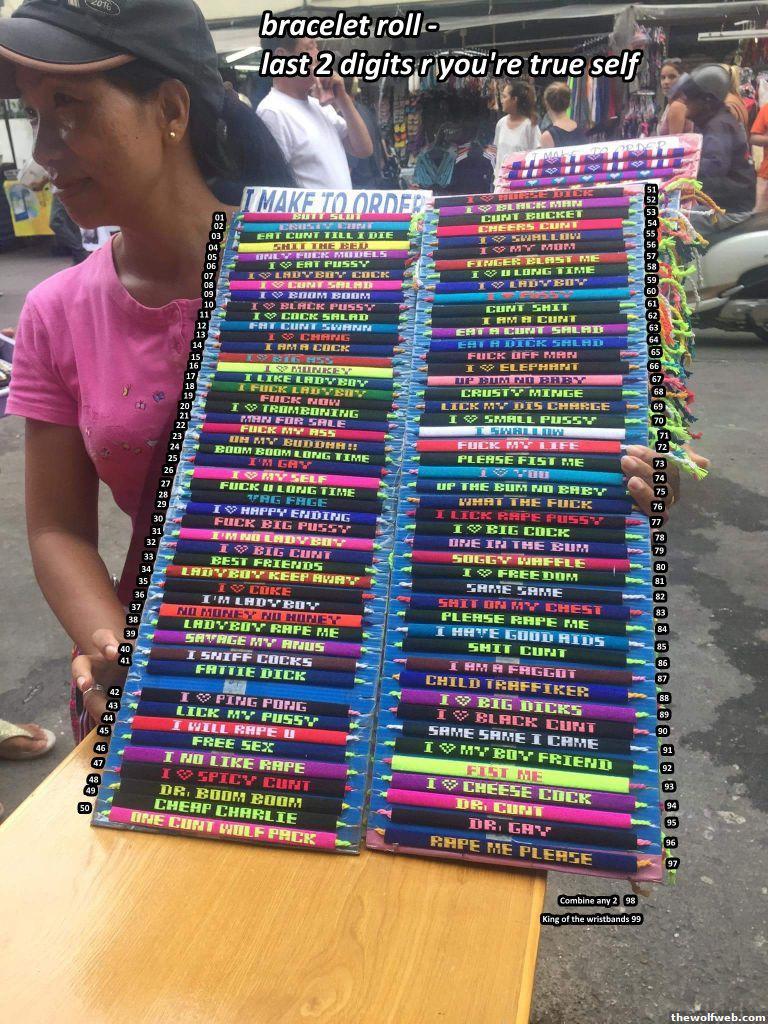 2016
bracelet roll -
last 2 digits r you're true self
I MAKE TO ORDER
I MAKE TO ORDER
01 BUTT SLUT
02 CRUSTY CUNT
03 EAT CUNT TILL I DIE
04 SHIT THE BED
05 ONLY FUCK MODELS
06 I ♡ EAT PUSSY
07 I ♡ LADYBOY COCK
08 I ♡ CUNT SALAD
09 I ♡ BOOM BOOM
10 I ♡ BLACK PUSSY
11 I ♡ COCK SALAD
12 FAT CUNT SWANN
13 I ♡ CHANG
14 I AM A COCK
15 I ♡ BIG ASS
16 I ♡ MONKEY
17 I LIKE LADYBOY
18 I FUCK LADYBOY
19 FUCK NOW
20 I ♡ TROMBONING
21 MAN FOR SALE
22 FUCK MY ASS
23 OH MY BUDDHA!!
24 BOOM BOOM LONG TIME
25 I'M GAY
26 I ♡ MY SELF
27 FUCK U LONG TIME
28 VAG FACE
29 I ♡ HAPPY ENDING
30 FUCK BIG PUSSY
31 I'M NO LADYBOY
32 I ♡ BIG CUNT
33 BEST FRIENDS
34 LADYBOY KEEP AWAY
35 I ♡ COKE
36 I'M LADYBOY
37 NO MONEY NO HONEY
38 LADYBOY RAPE ME
39 SAVAGE MY ANUS
40 I SNIFF COCKS
41 FATTIE DICK
42 I ♡ PING PONG
43 LICK MY PUSSY
44 I WILL RAPE U
45 FREE SEX
46 I NO LIKE RAPE
47 I ♡ SPICY CUNT
48 DR. BOOM BOOM
49 CHEAP CHARLIE
50 ONE CUNT WOLF PACK
I ♡ HORSE DICK 51
I ♡ BLACK MAN 52
CUNT BUCKET 53
CHEERS CUNT 54
I ♡ SWALLOW 55
I ♡ MY MOM 56
FINGER BLAST ME 57
I ♡ U LONG TIME 58
I ♡ LADYBOY 59
I ♡ PUSSY 60
CUNT SHIT 61
I AM A CUNT 62
EAT A CUNT SALAD 63
EAT A DICK SALAD 64
FUCK OFF MAN 65
I ♡ ELEPHANT 66
UP BUM NO BABY 67
CRUSTY MINGE 68
LICK MY DIS CHARGE 69
I ♡ SMALL PUSSY 70
I SWALLOW 71
FUCK MY LIFE 72
PLEASE FIST ME 73
I ♡ YOU 74
UP THE BUM NO BABY 75
WHAT THE FUCK 76
I LICK RAPE PUSSY 77
I ♡ BIG COCK 78
ONE IN THE BUM 79
SOGGY WAFFLE 80
I ♡ FREEDOM 81
SAME SAME 82
SHIT ON MY CHEST 83
PLEASE RAPE ME 84
I HAVE GOOD AIDS 85
SHIT CUNT 86
I AM A FAGGOT 87
CHILD TRAFFIKER 88
I ♡ BIG DICKS 89
I ♡ BLACK CUNT 90
SAME SAME I CAME 91
I ♡ MY BOY FRIEND 92
FIST ME 93
I ♡ CHEESE COCK 94
DR. CUNT 95
DR. GAY 96
RAPE ME PLEASE 97
Combine any 2 98
King of the wristbands 99
thewolfweb.com